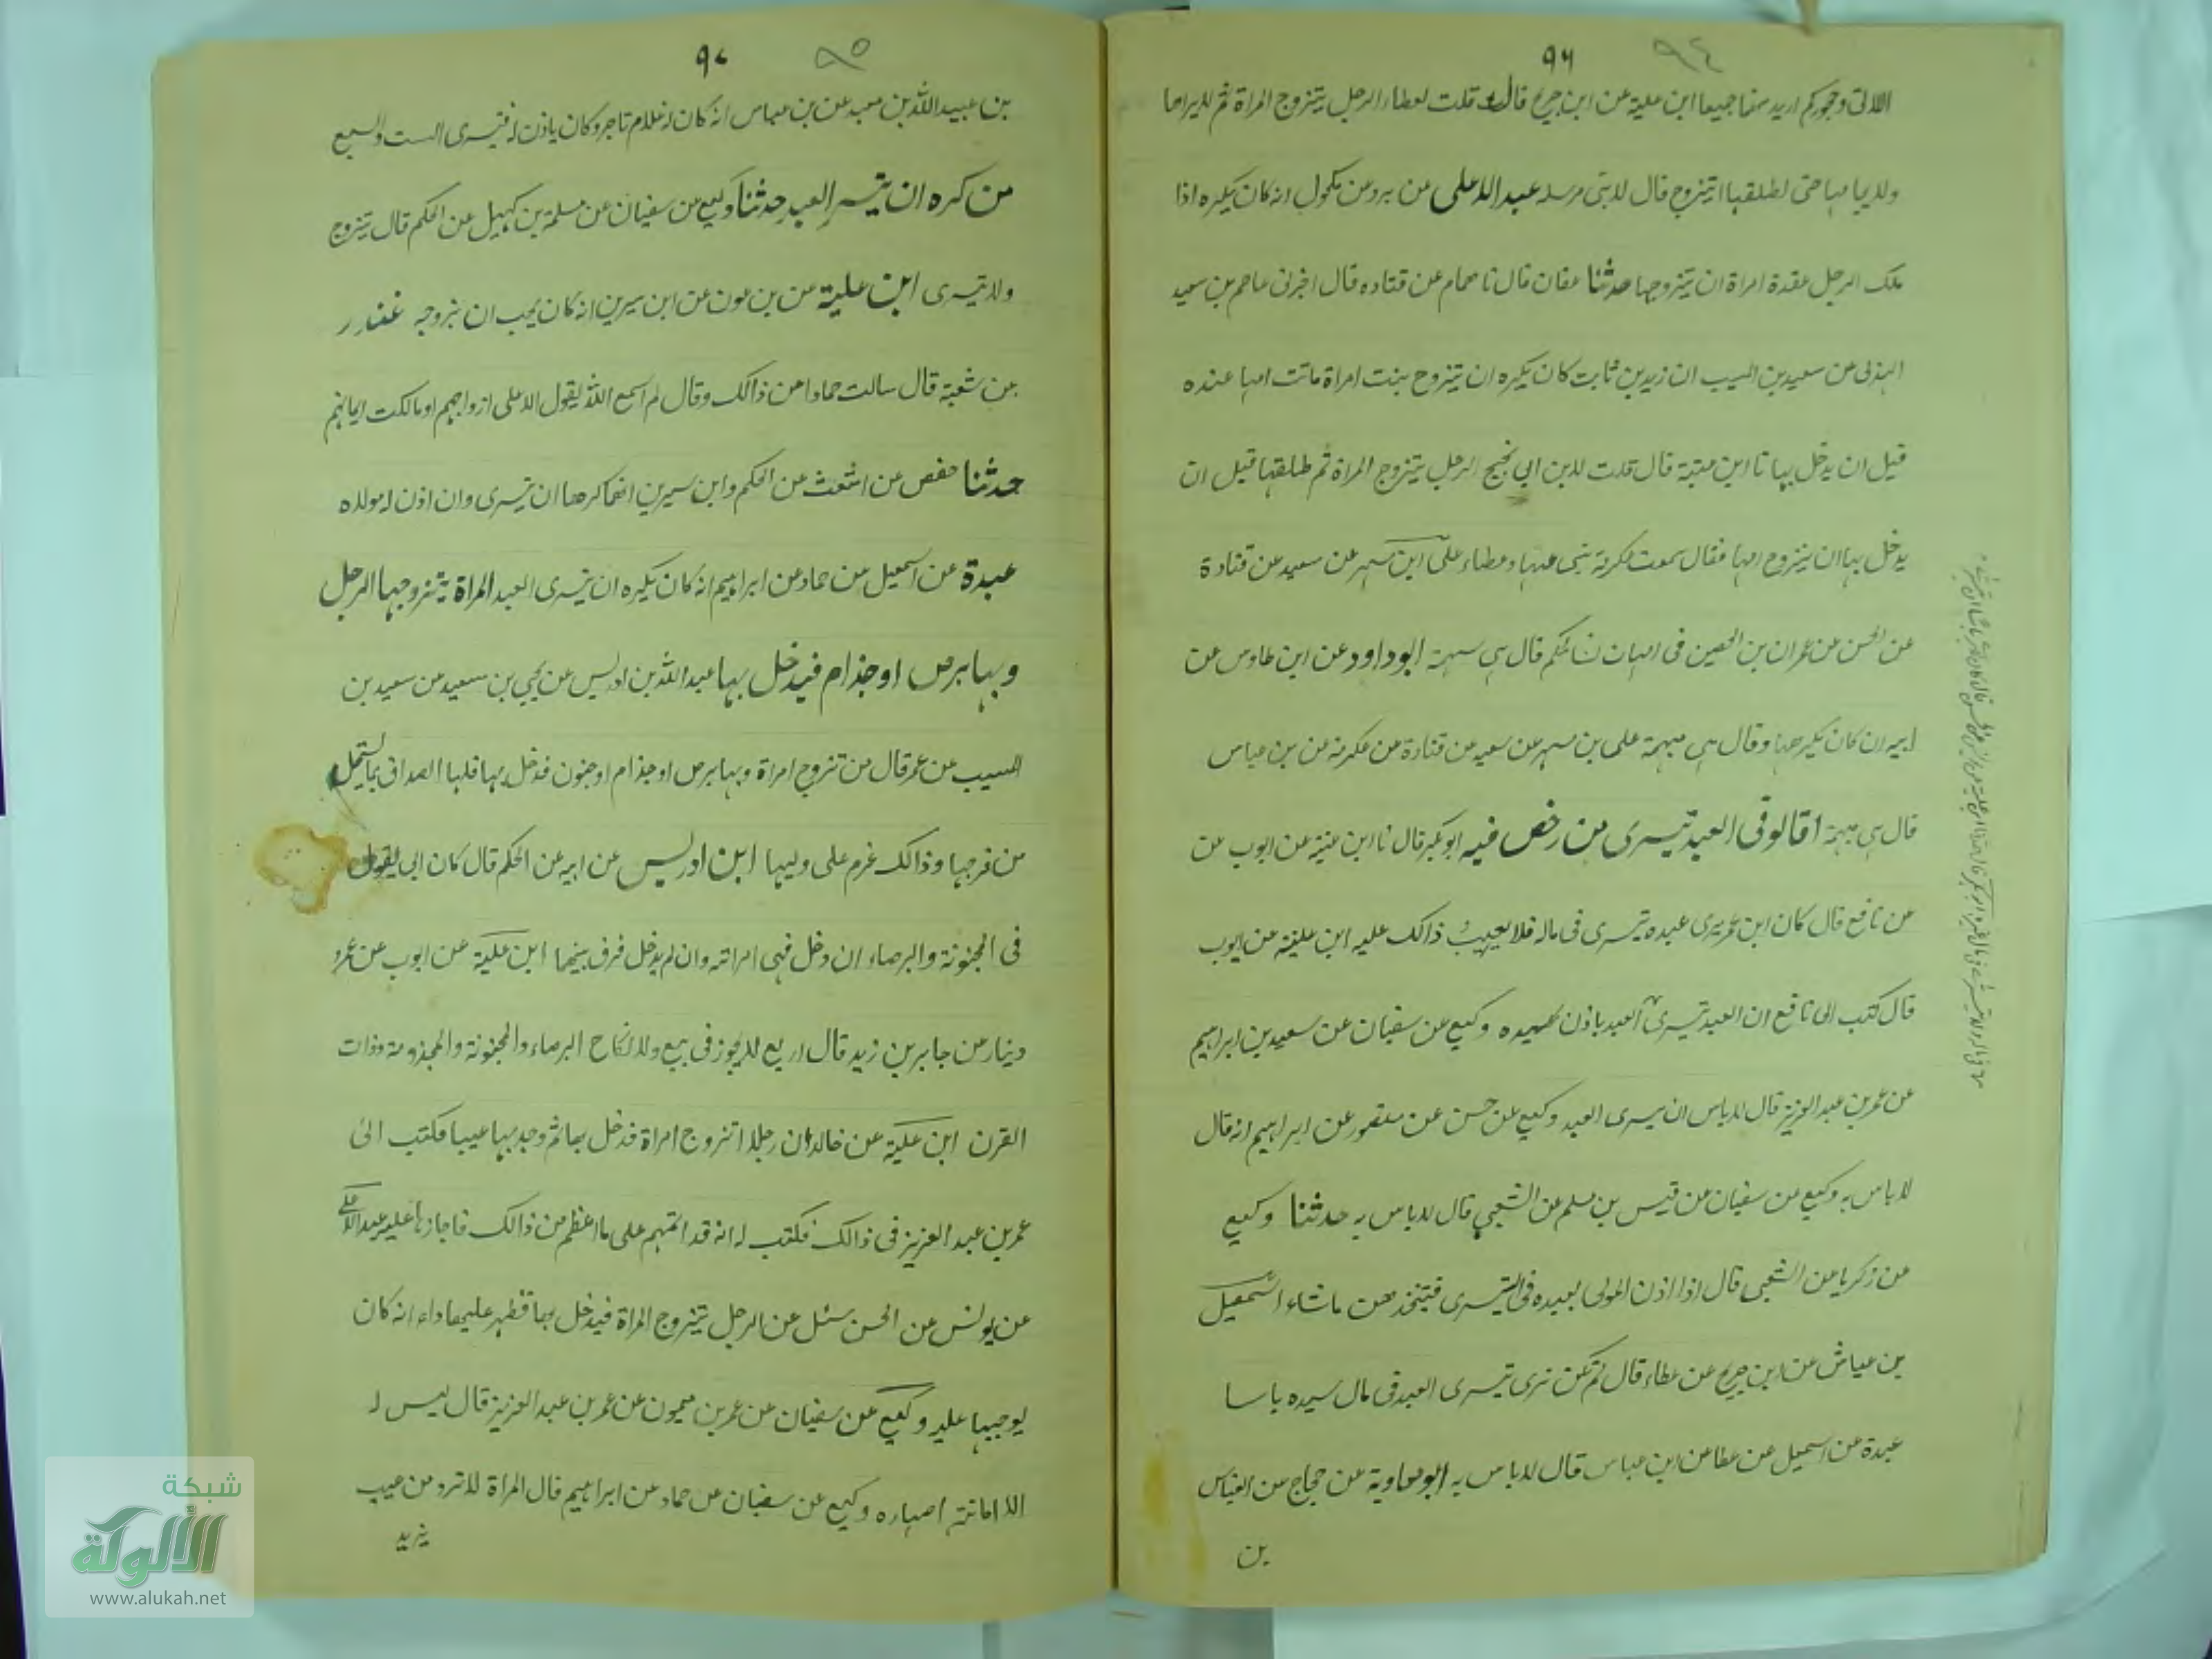 ٩٦ ٩٤
اللاتى وحجوركم اريد بهما جميعا ابن علية عن ابن جريج قال قلت لعطاء الرجل يتزوج المراة ثم لا يراها
ولا يجامعها حتى يطلقها ايتزوج قال لا بنتى مرسلة عبد الاعلى عن برد عن مكحول انه كان يكره اذا
ملك الرجل عقدة امراة ان يتزوجها حدثنا عفان قال نا همام عن قتاده قال اخبرنى عاصم بن سعيد
الهذلى عن سعيد بن المسيب ان زيد بن ثابت كان يكره ان يتزوج بنت امراة ماتت امها عنده
قبل ان يدخل بها نا ابن عيينة قال قلت لابن ابى نجيح الرجل يتزوج المراة ثم طلقها قبل ان
يدخل بها ان يتزوج امها فقال سمعت عكرمة ينهى عنها وعطاء على ابن مسهر عن سعيد عن قتادة
عن الحسن عن عمران بن الحصين فى امهات نسائكم قال هى مبهمة ابو داود عن ابن طاوس عن
ابيه ان كان يكرهها وقال هى مبهمة على بن مسهر عن سعيد عن قتادة عن عكرمة عن بن عباس
قال هى مبهمة اقالو فى العبد يتسرى من رخص فيه ابو بكر قال نا ابن علية عن ايوب عن
عن نافع قال كان ابن عمر يرى عبده يتسرى فى ماله فلا يعيب ذالك عليه ابن علية عن ايوب
قال كتب الى نافع ان العبد يتسرى العبد باذن سيده وكيع عن سفيان عن سعيد بن ابراهيم
عن عمر بن عبد العزيز قال لا باس ان يتسرى العبد وكيع عن حسن عن منصور عن ابراهيم انه قال
لا باس به وكيع عن سفيان عن قيس بن مسلم عن الشعبى قال لا باس به حدثنا وكيع
عن زكريا عن الشعبى قال اذا اذن المولى لعبده فى التسرى فيتخذ منهن ماشاء اسمعيل
بن عياش عن ابن جريج عن عطاء قال لم تكن نرى تيسرى العبد فى مال سيده باسا
عبدة عن اسمعيل عن عطا عن ابن عباس قال لا باس به ابو معاوية عن حجاج عن العباس
بن
٩٧ ٩٥
بن عبيد الله بن معبد عن بن عباس انه كان له غلام تاجر وكان ياذن له فيتسرى الست والسبع
من كره ان يتسر العبد حدثنا وكيع عن سفيان عن سلمة بن كهيل عن الحكم قال يتزوج
ولا يتسرى ابن علية عن بن عون عن ابن سيرين انه كان يحب ان يتزوجه غندر
عن شعبة قال سالت حمادا عن ذالك وقال لم اسمع الله يقول الا على ازواجهم او ما ملكت ايمانهم
حدثنا حفص عن اشعث عن الحكم وابن سيرين انهما كرها ان يتسرى وان اذن له مولاه
عبدة عن اسمعيل عن حماد عن ابراهيم انه كان يكره ان يتسرى العبد المراة يتزوجها الرجل
وبها برص او جذام فيدخل بها عبد الله بن ادريس عن يحيى بن سعيد عن سعيد بن
المسيب عن عمر قال من تزوج امراة وبها برص او جذام او جنون فدخل بها فلها الصداق بما يستحل
من فرجها وذالك غرم على وليها ابن ادريس عن ابيه عن الحكم قال كان ابى يقول
فى المجنونة والبرصاء ان دخل فهى امراته وان لم يدخل فرق بينهما ابن علية عن ايوب عن عمرو
دينار عن جابر بن زيد قال اربع لا يجوز فى بيع ولا نكاح البرصاء والمجنونة والمجذومة وذات
القرن ابن علية عن خالد ان رجلا تزوج امراة فدخل بها ثم وجد بها عيبا فكتب الى
عمر بن عبد العزيز فى ذالك فكتب له انه قد ائتمنهم على ما اعظم من ذالك فاجازها عليه عبد الاعلى
عن يونس عن الحسن سئل عن الرجل يتزوج المراة فيدخل بها فظهر عليها داء انه كان
يوجبها عليه وكيع عن سفيان عن عمر بن ميمون عن عمر بن عبد العزيز قال ليس له
الا امانة اصهاره وكيع عن سفيان عن حماد عن ابراهيم قال المراة لا ترد من عيب
يزيد
شبكة
الألوكة
www.alukah.net